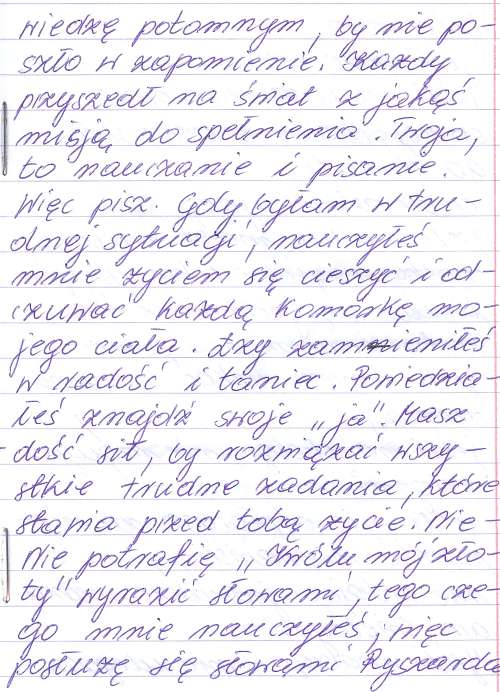 wiedzę potomnym, by nie po-
szło w zapomienie. Każdy
przyszedł na świat z jakąś
misją do spełnienia. Twoja,
to nauczanie i pisanie.
Więc pisz. Gdy byłam w tru-
dnej sytuacji, nauczyłeś
mnie życiem się cieszyć i od-
czuwać każdą komórkę mo-
jego ciała. Łzy zamieniłeś
w radość i taniec. Powiedzia-
łeś znajdź swoje „ja”. Masz
dość sił, by rozwiązać wszy-
stkie trudne zadania, które
stawia przed tobą życie. Nie-
Nie potrafię „Królu mój zło-
ty” wyrazić słowami, tego cze-
go mnie nauczyłeś, więc
posłużę się słowami Ryszarda